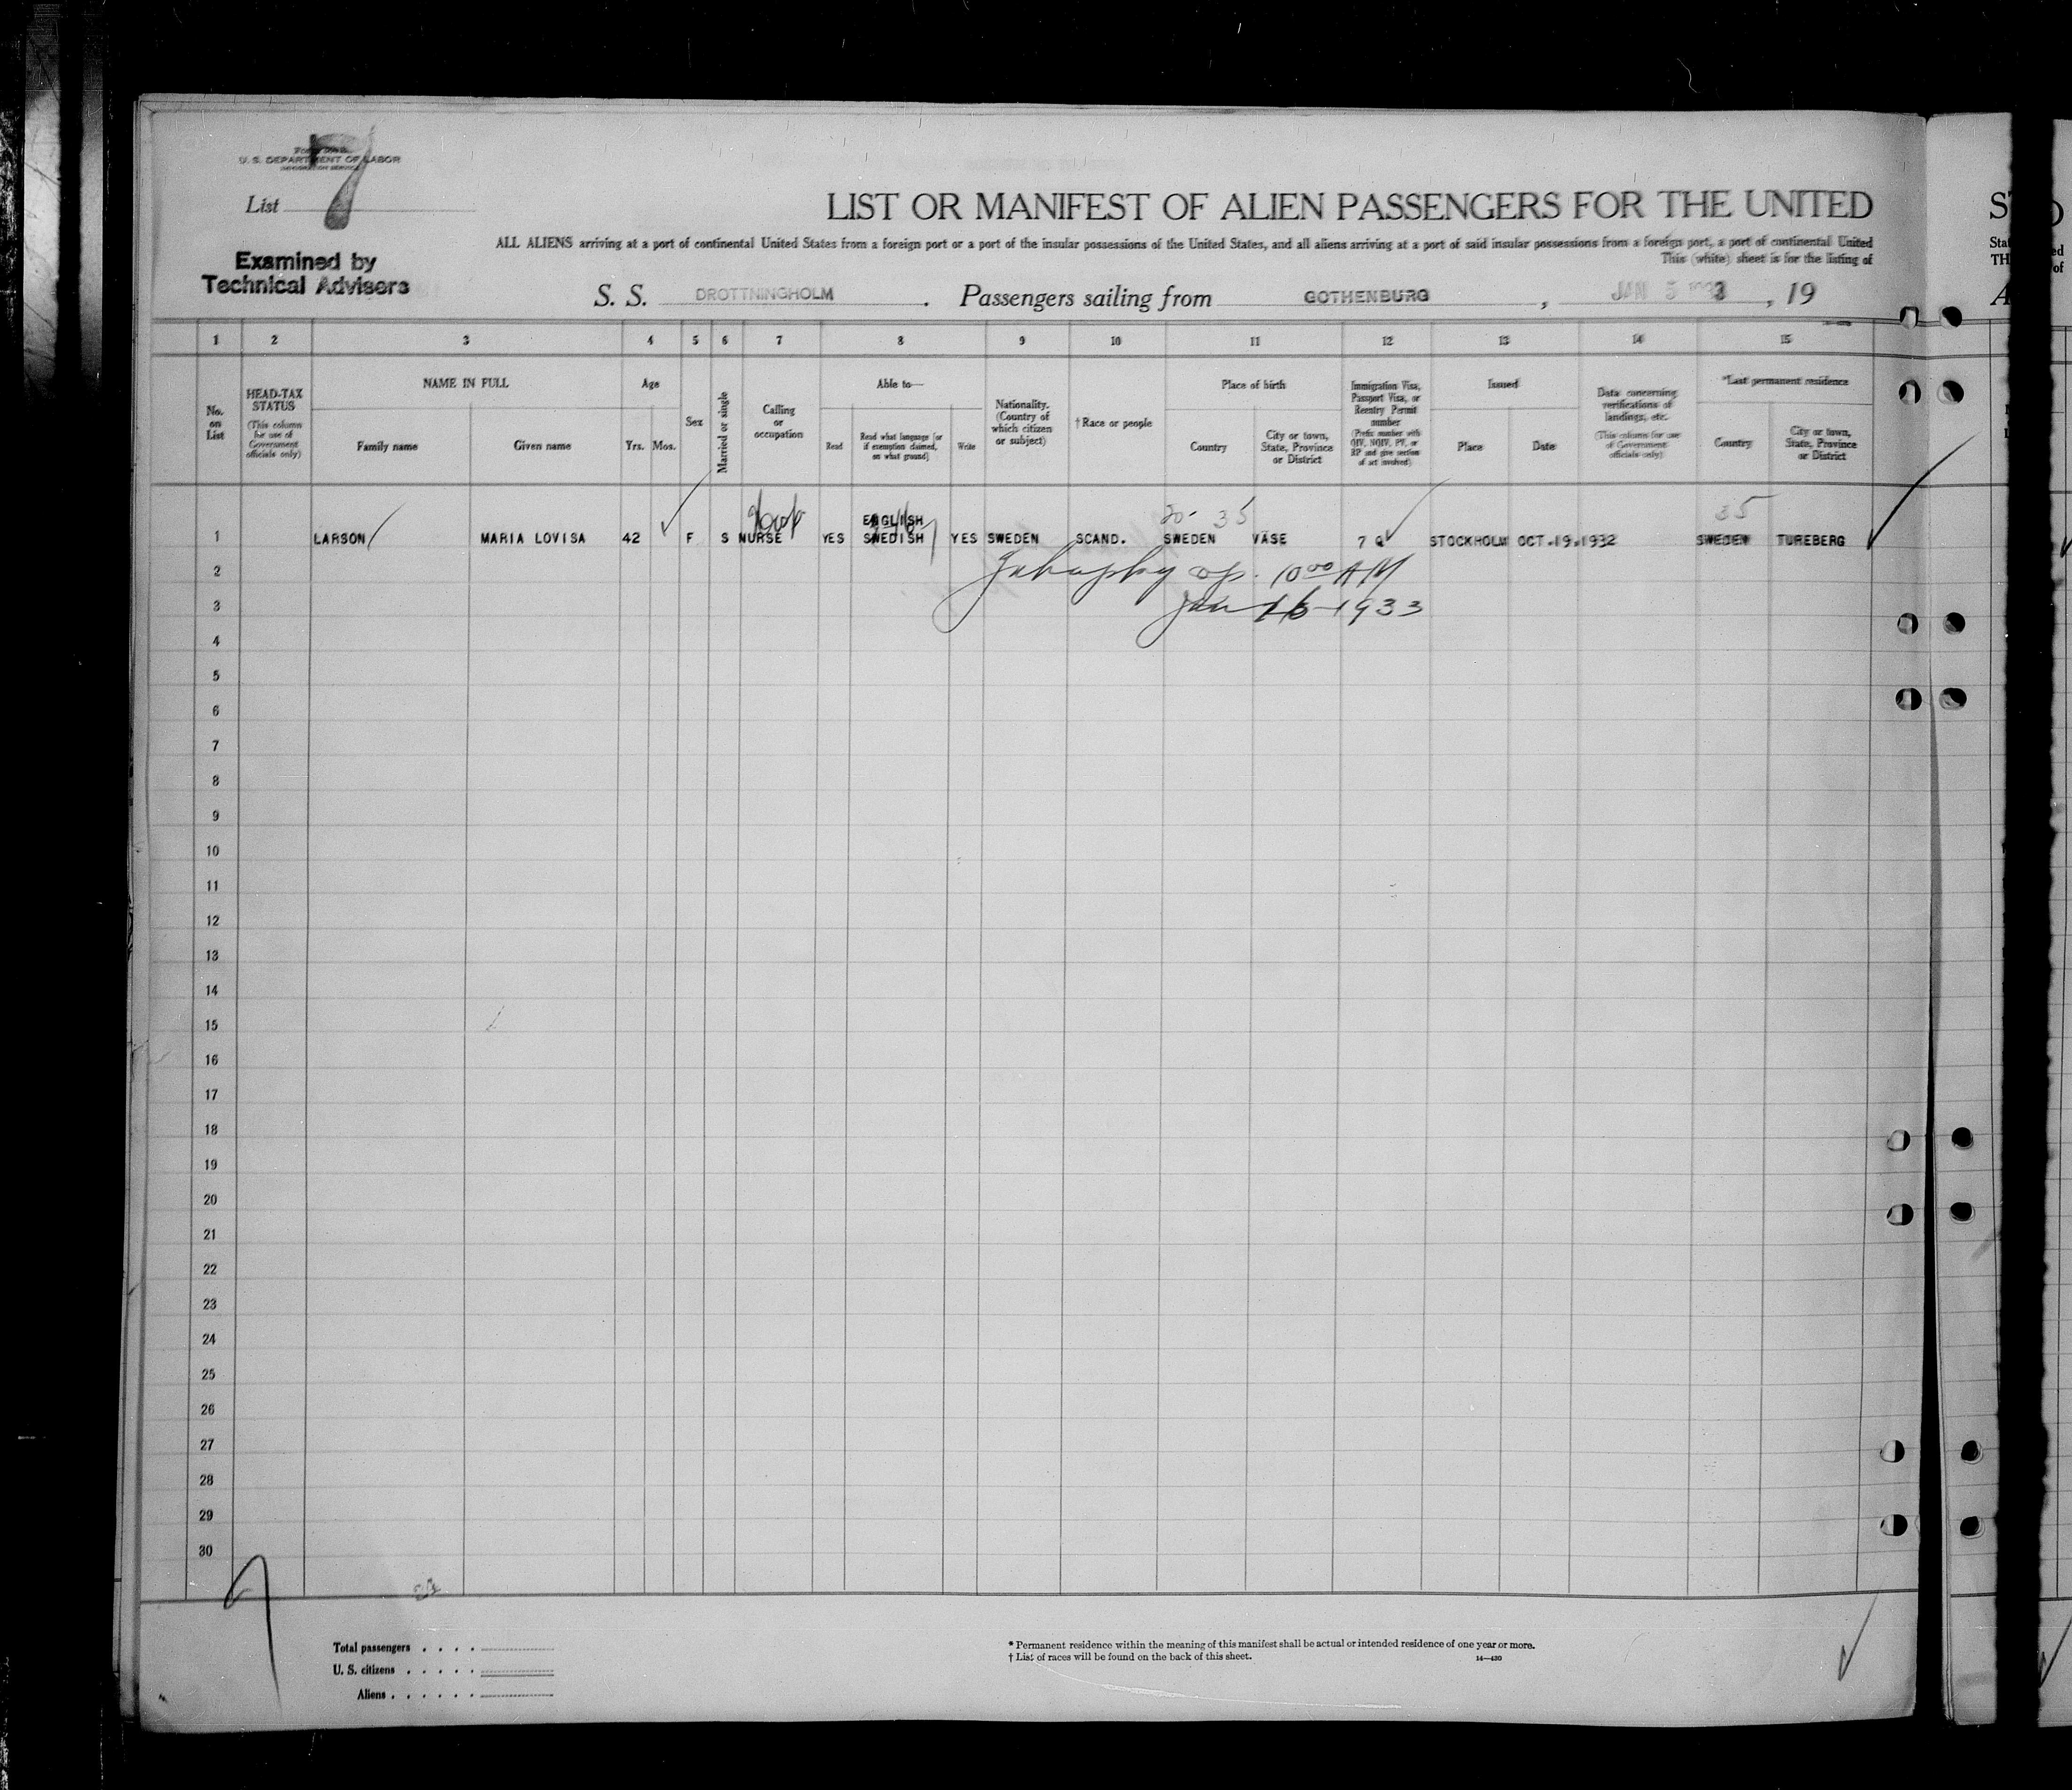 U. S. DEPARTMENT OF LABOR
IMMIGRATION SERVICE
List 7
Examined by
Technical Advisers
LIST OR MANIFEST OF ALIEN PASSENGERS FOR THE UNITED
ALL ALIENS arriving at a port of continental United States from a foreign port or a port of the insular possessions of the United States, and all aliens arriving at a port of said insular possessions from a foreign port, a port of continental United
This (white) sheet is for the listing of
S. S. DROTTNINGHOLM . Passengers sailing from GOTHENBURG , JAN 5 1933 , 19
1 2 3 4 5 6 7 8 9 10 11 12 13 14 15
No. on List
HEAD-TAX STATUS (This column for use of Government officials only)
NAME IN FULL
Family name Given name
Age
Yrs. Mos.
Sex
Married or single
Calling or occupation
Able to—
Read Read what language (or if exemption claimed, on what ground) Write
Nationality. (Country of which citizen or subject)
†Race or people
Place of birth
Country City or town, State, Province or District
Immigration Visa, Passport Visa, or Reentry Permit number (Prefix number with QIV, NQIV, PV, or RP and give section of act involved)
Issued
Place Date
Data concerning verifications of landings, etc. (This column for use of Government officials only)
*Last permanent residence
Country City or town, State, Province or District
35 35
ENGLISH
1 LARSON MARIA LOVISA 42 F S NURSE YES SWEDISH YES SWEDEN SCAND. SWEDEN VÄSE 7 Q STOCKHOLM OCT.19.1932 SWEDEN TUREBERG
2 10⁰⁰ AM
3 Jan 16-1933
4
5
6
7
8
9
10
11
12
13
14
15
16
17
18
19
20
21
22
23
24
25
26
27
28
29
30
Total passengers . . . .
U. S. citizens . . . . .
Aliens . . . . . .
* Permanent residence within the meaning of this manifest shall be actual or intended residence of one year or more.
† List of races will be found on the back of this sheet.
14—430